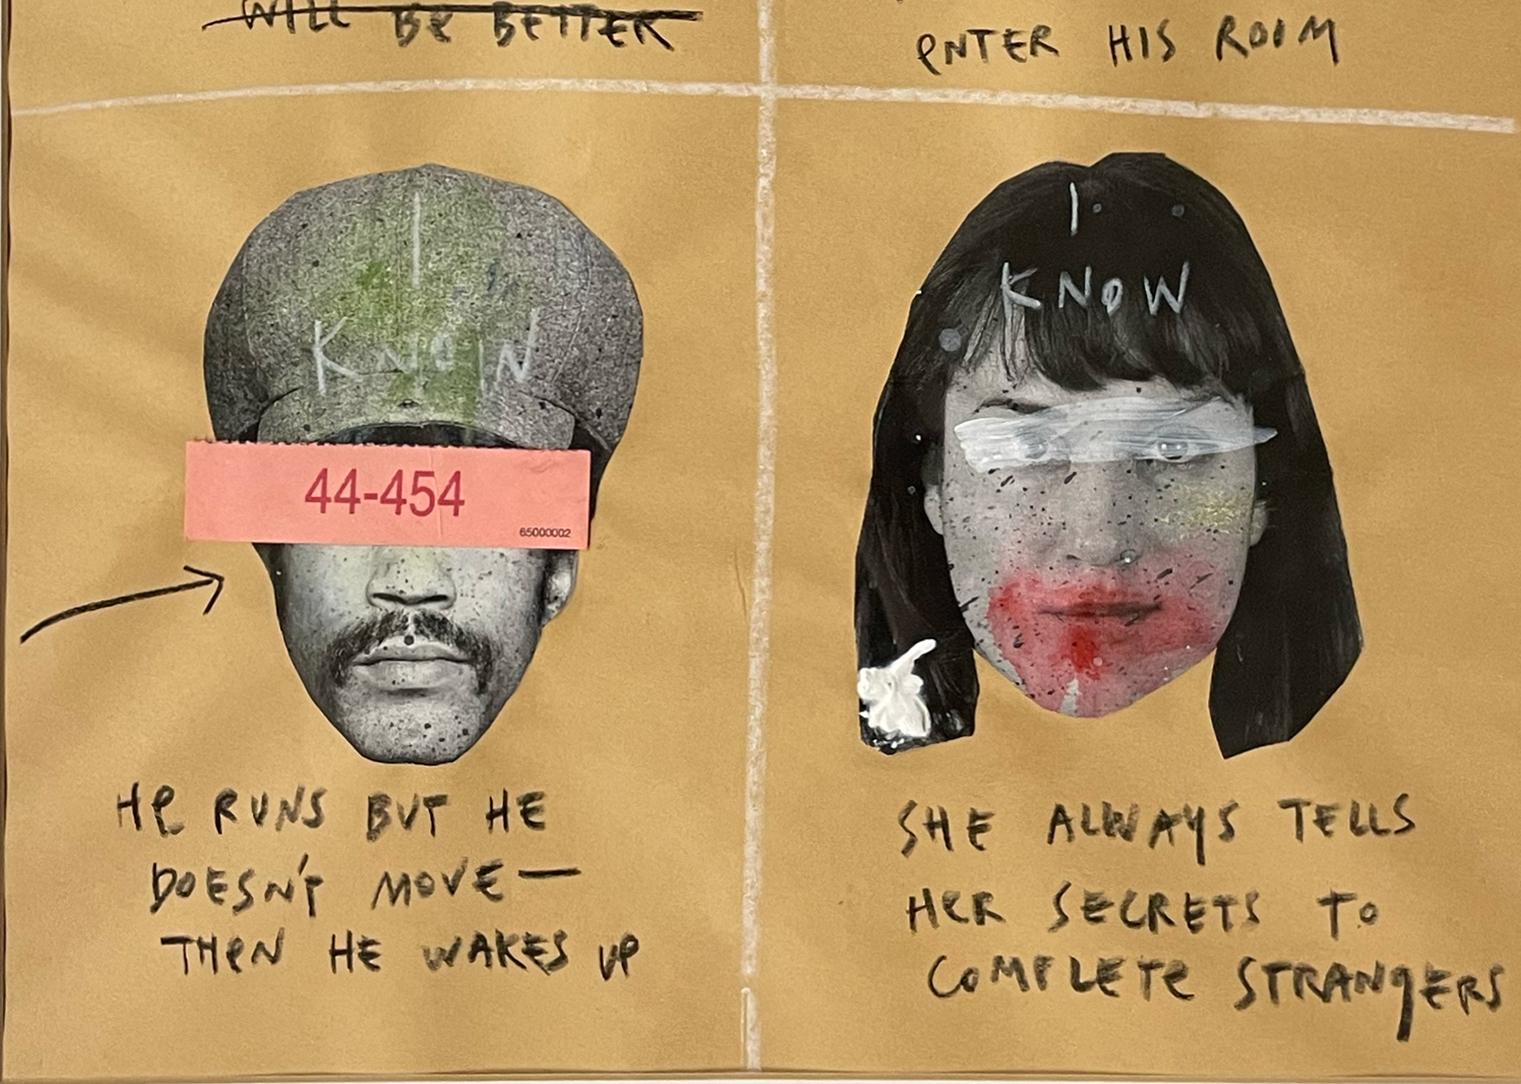 WILL BE BETTER
ENTER HIS ROOM
I
KNOW
44-454
65000002
HE RUNS BUT HE
DOESN'T MOVE—
THEN HE WAKES UP
I
KNOW
SHE ALWAYS TELLS
HER SECRETS TO
COMPLETE STRANGERS